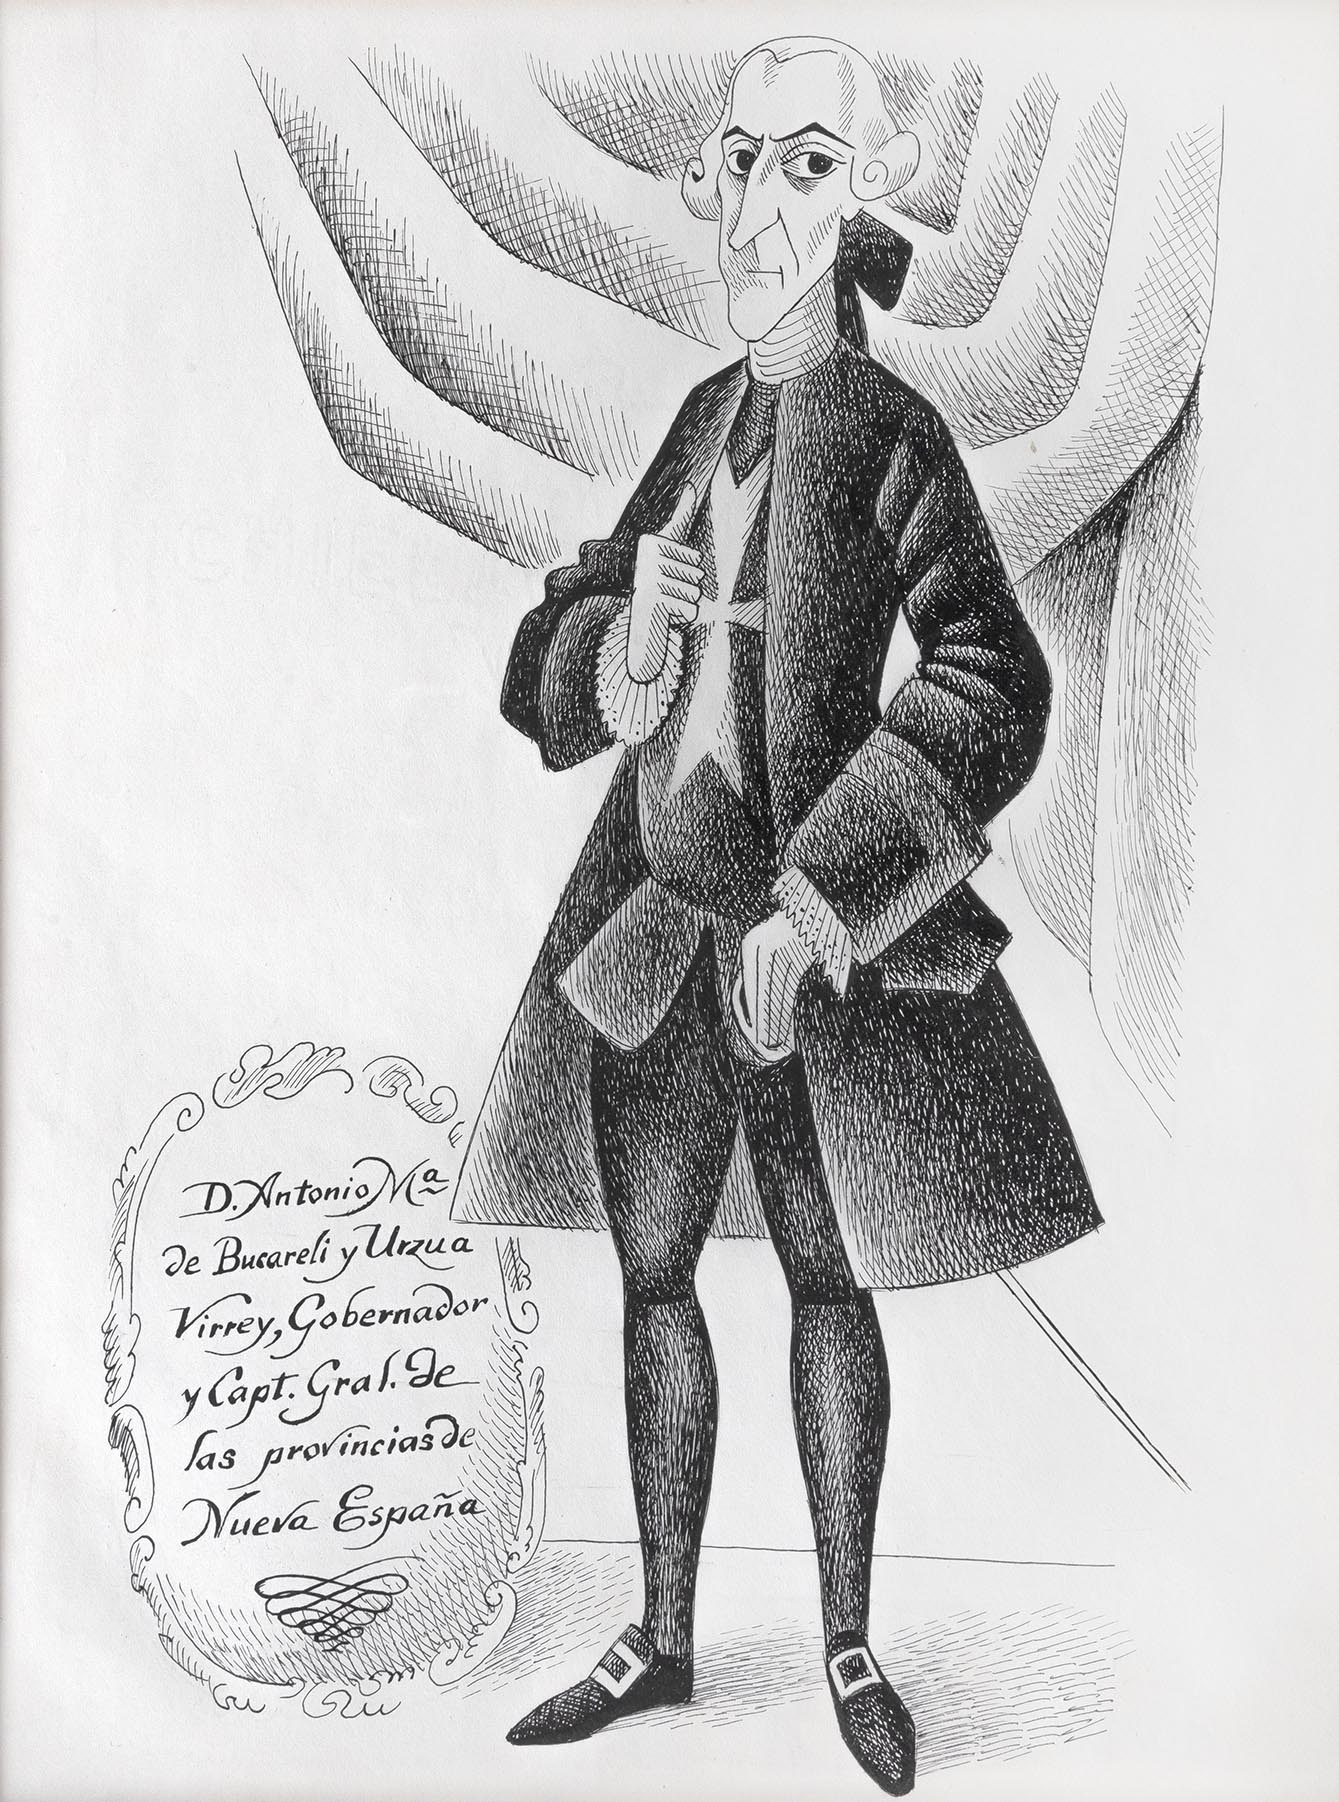 D. Antonio Mª
de Bucareli y Urzua
Virrey, Gobernador
y Capt. Gral. de
las provincias de
Nueva España